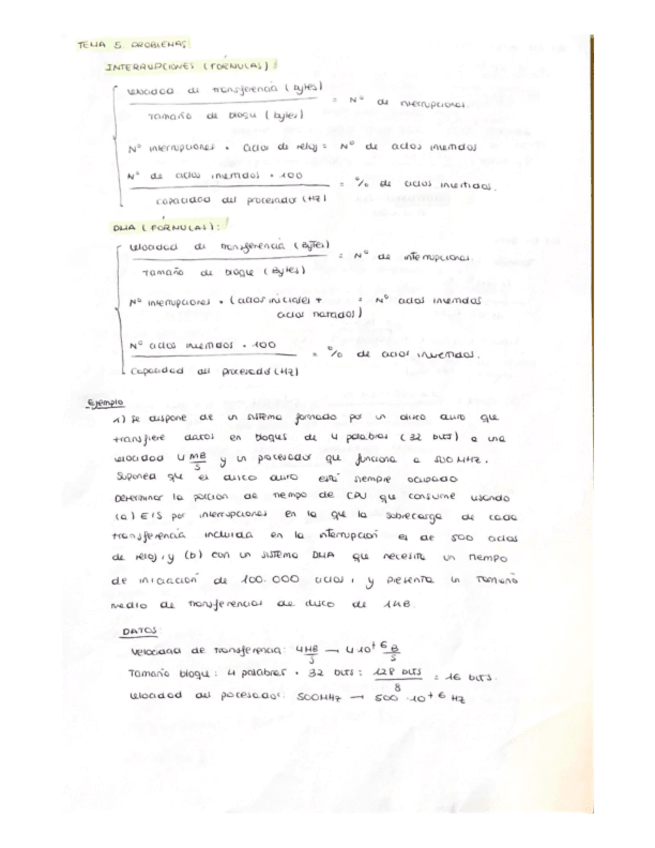 TEMA 5 PROBLEMAS
INTERRUPCIONES (FÓRMULAS):
velocidad de transferencia (bytes)
tamaño de bloque (bytes) = Nº de interrupciones.
Nº interrupciones · ciclos de reloj = Nº de ciclos invertidos
Nº de ciclos invertidos · 100
capacidad del procesador (Hz) = % de ciclos invertidos.
DMA (FÓRMULAS):
velocidad de transferencia (Bytes)
Tamaño de bloque (Bytes) = Nº de interrupciones
Nº interrupciones · (ciclos iniciales + = Nº ciclos invertidos
ciclos
Nº ciclos invertidos · 100
Capacidad del procesador (Hz) = % de ciclos invertidos.
Ejemplo
1) Se dispone de un sistema formado por un disco duro que
transfiere datos en bloques de 4 palabras (32 bits) a una
velocidad 4 MB/S y un procesador que funciona a 500 MHz.
Suponga que el disco duro está siempre ocupado
Determinar la porción de tiempo de CPU que consume usando
(a) E/S por interrupciones en la que la sobrecarga de cada
transferencia incluida en la interrupción es de 500 ciclos
de reloj, y (b) con un sistema DMA que necesite un tiempo
de iniciación de 100.000 ciclos, y presenta un tamaño
medio de transferencias de disco de 1KB.
DATOS:
Velocidad de transferencia: 4MB/S → 4·10⁺⁶ B/S
Tamaño bloque: 4 palabras · 32 bits: 128 bits/8 = 16 bits.
Velocidad del pocesador: 500MHz → 500·10⁺⁶ Hz